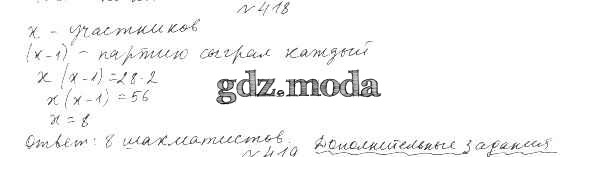 №418
x – участников
(x-1) – партию сыграл каждый
x (x-1) = 28·2
x (x-1) = 56
gdz.moda
x = 8
Ответ: 8 шахматистов.
№419 Дополнительные задания